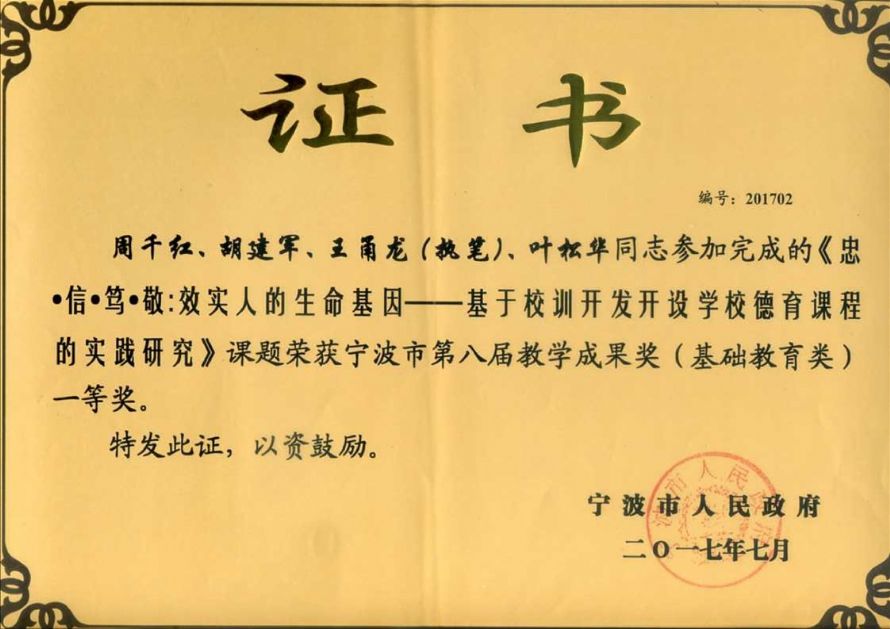 证 书
编号：201702
周千红、胡建军、王甬龙（执笔）、叶松华同志参加完成的《忠
•信•笃•敬:效实人的生命基因——基于校训开发开设学校德育课程
的实践研究》课题荣获宁波市第八届教学成果奖（基础教育类）
一等奖。
特发此证，以资鼓励。
宁波市人民政府
二〇一七年七月